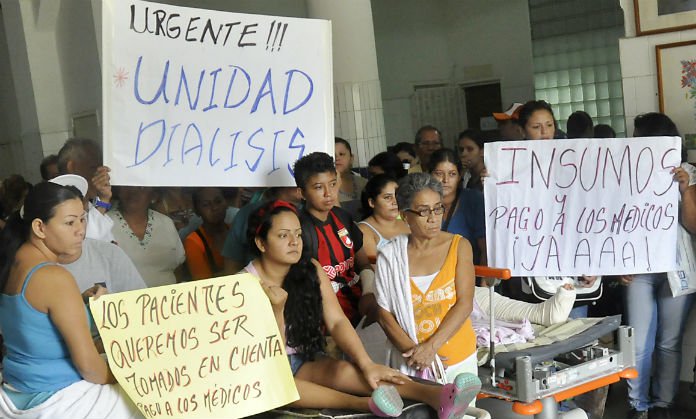 URGENTE!!!
UNIDAD
DIALISIS
INSUMOS
Y
PAGO A LOS MÉDICOS
¡YA AAA!
LOS PACIENTES
QUEREMOS SER
TOMADOS EN CUENTA
PAGO A LOS MÉDICOS